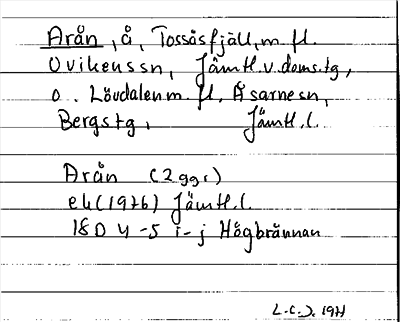 Arån, å, Tossåsfjäll, m. fl.
Ovikenssn, Jämtl. v. doms. tg,
o. Lövdalen m. fl. Åsarnesn,
Bergs tg, Jämtl. l.
Arån (2 ggr)
ek (1976) Jämtl. l.
18D 4-5 i-j Högbrännan
1971